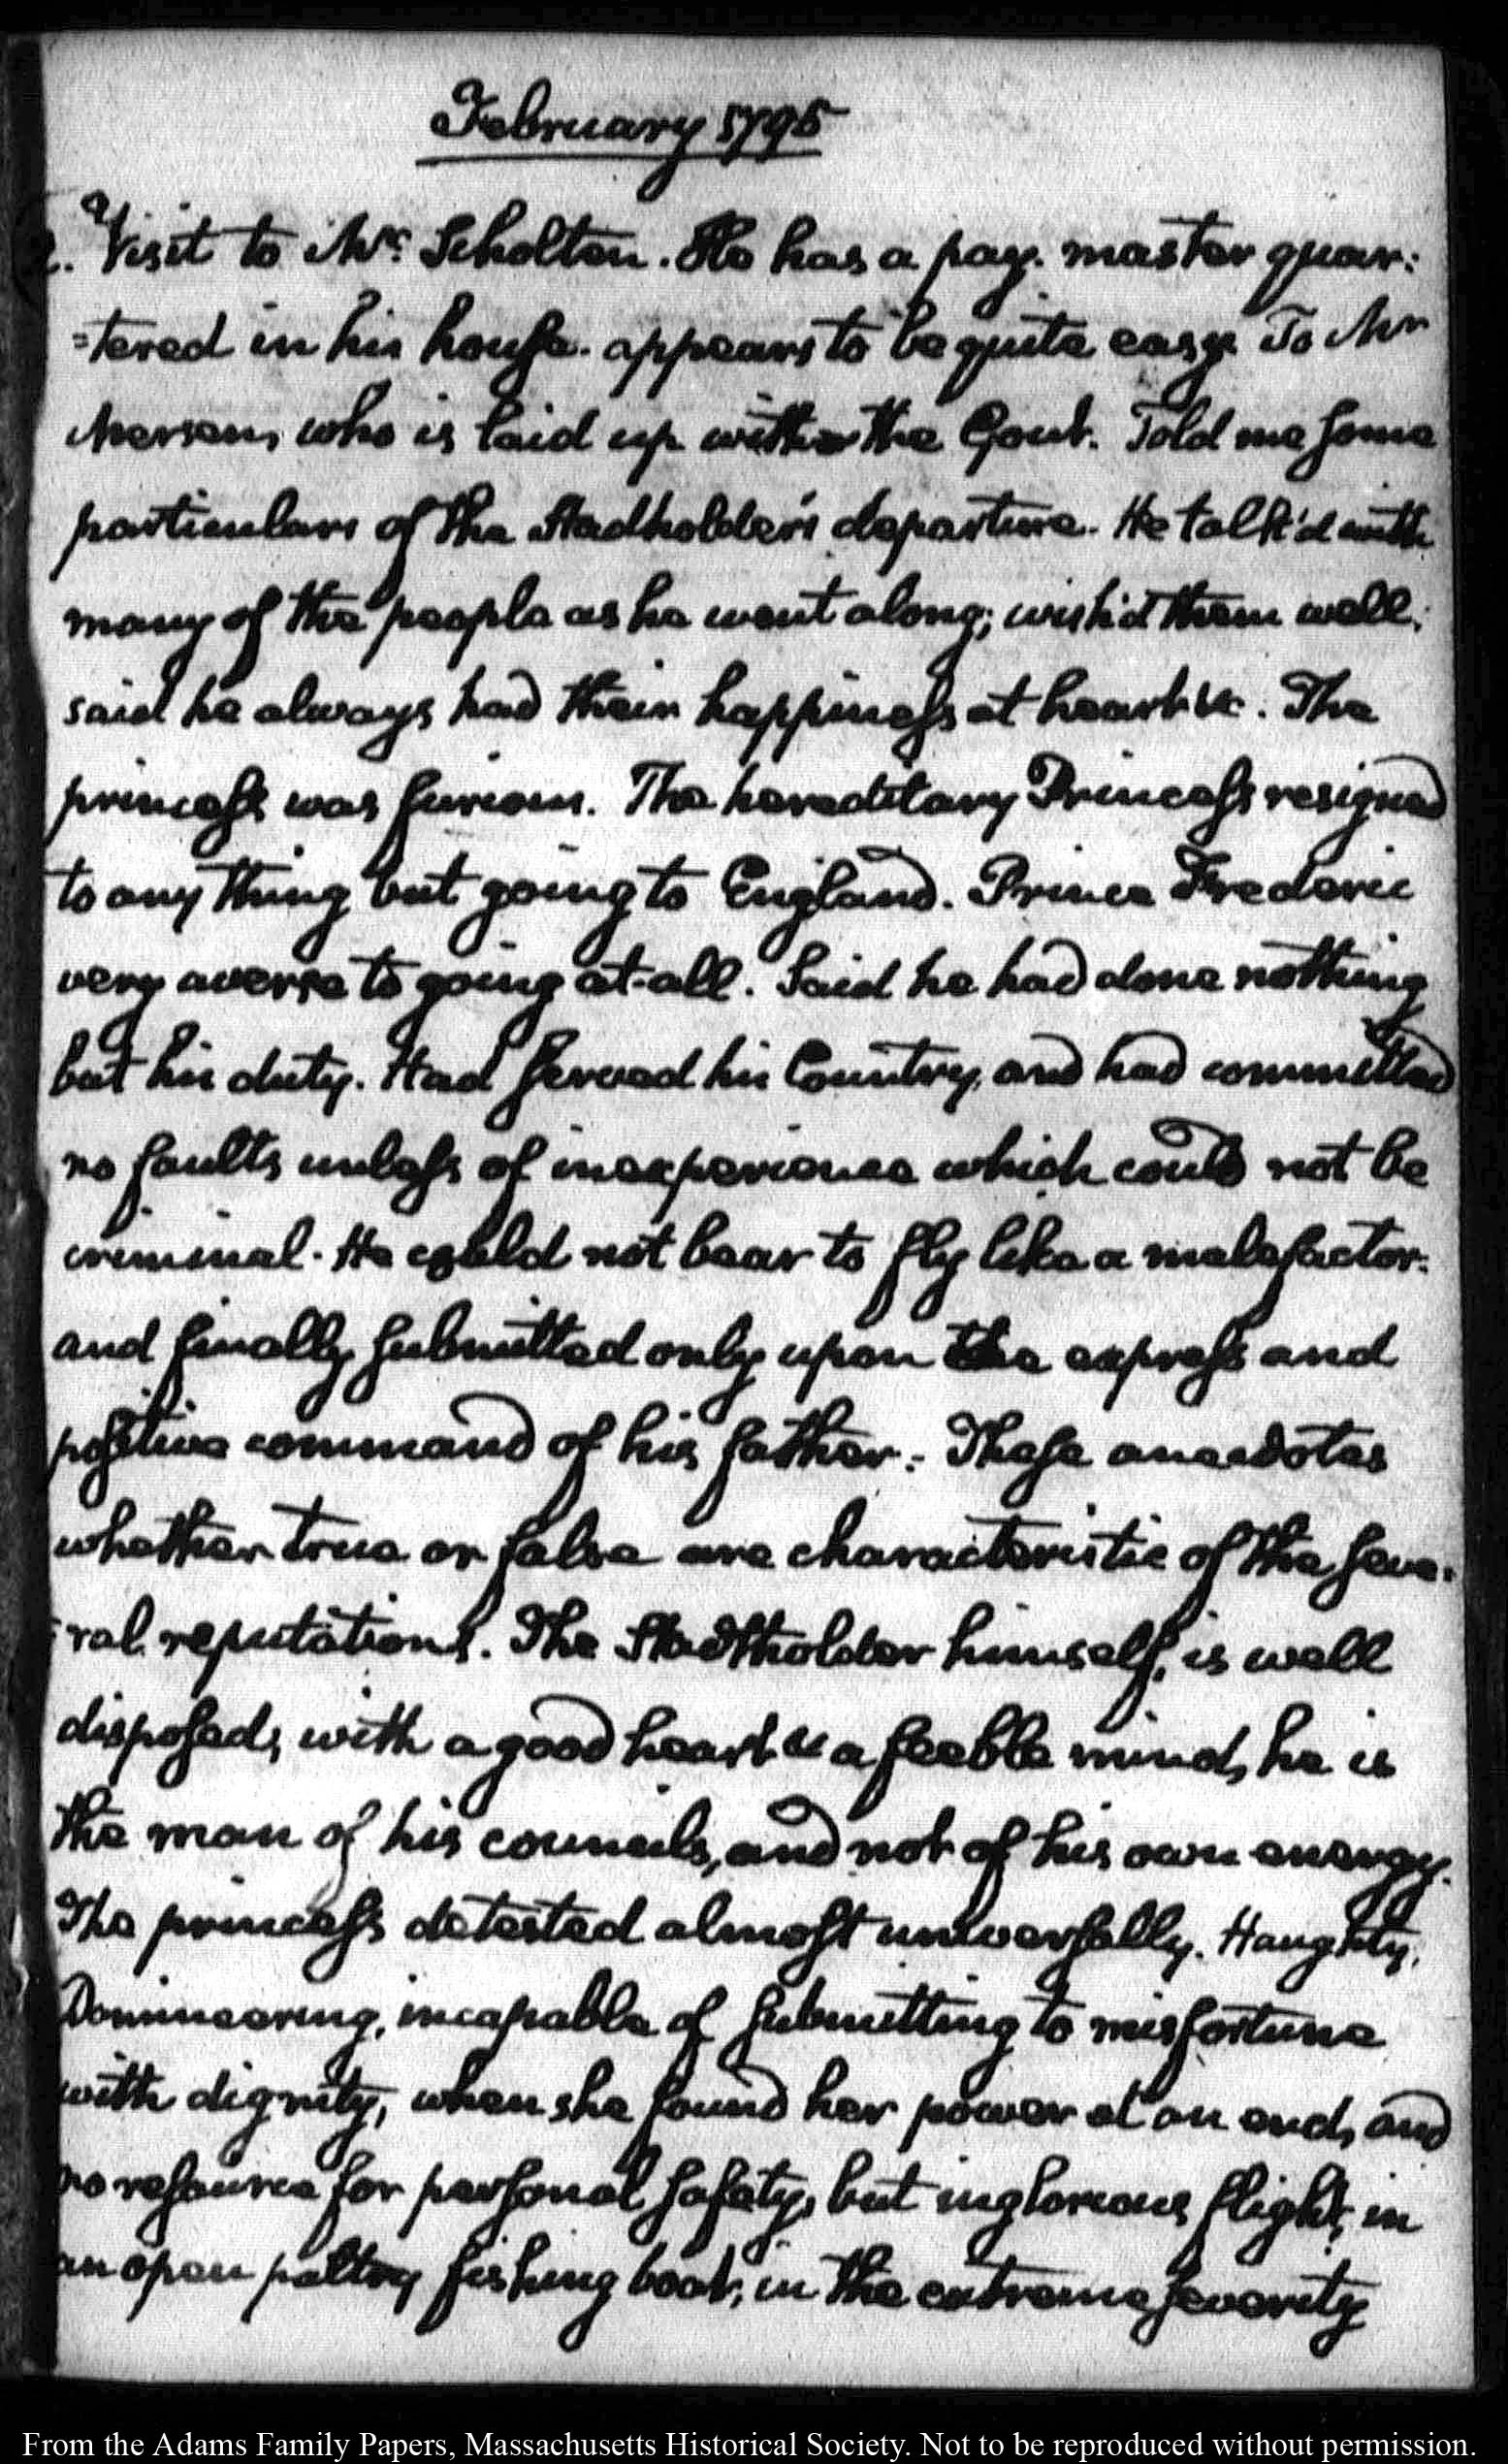 February 1795
2. Visit to Mr. Scholten. He has a pay-master quar:
=tered in his house. appears to be quite easy. To Mr
Mersen, who is laid up with the Gout. Told me some
particulars of the Stadholder's departure. He talk'd with
many of the people as he went along; wish'd them well;
said he always had their happiness at heart &c. The
princess was furious. The hereditary Princess resigned
to any thing but going to England. Prince Frederic
very averse to going at-all. Said he had done nothing
but his duty. Had served his Country, and had committed
no faults unless of inexperience which could not be
criminal. He could not bear to fly like a malefactor.
and finally submitted only upon the express and
positive command of his father. These anecdotes
whether true or false are characteristic of the seve:
:ral reputations. The Stadtholder himself, is well
disposed, with a good heart & a feeble mind, he is
the man of his councils, and not of his own energy.
The princess detested almost universally. Haughty,
Domineering, incapable of submitting to misfortune
with dignity, when she found her power at an end, and
no resource for personal safety, but inglorious flight, in
an open paltry fishing boat, in the extreme severity
From the Adams Family Papers, Massachusetts Historical Society. Not to be reproduced without permission.